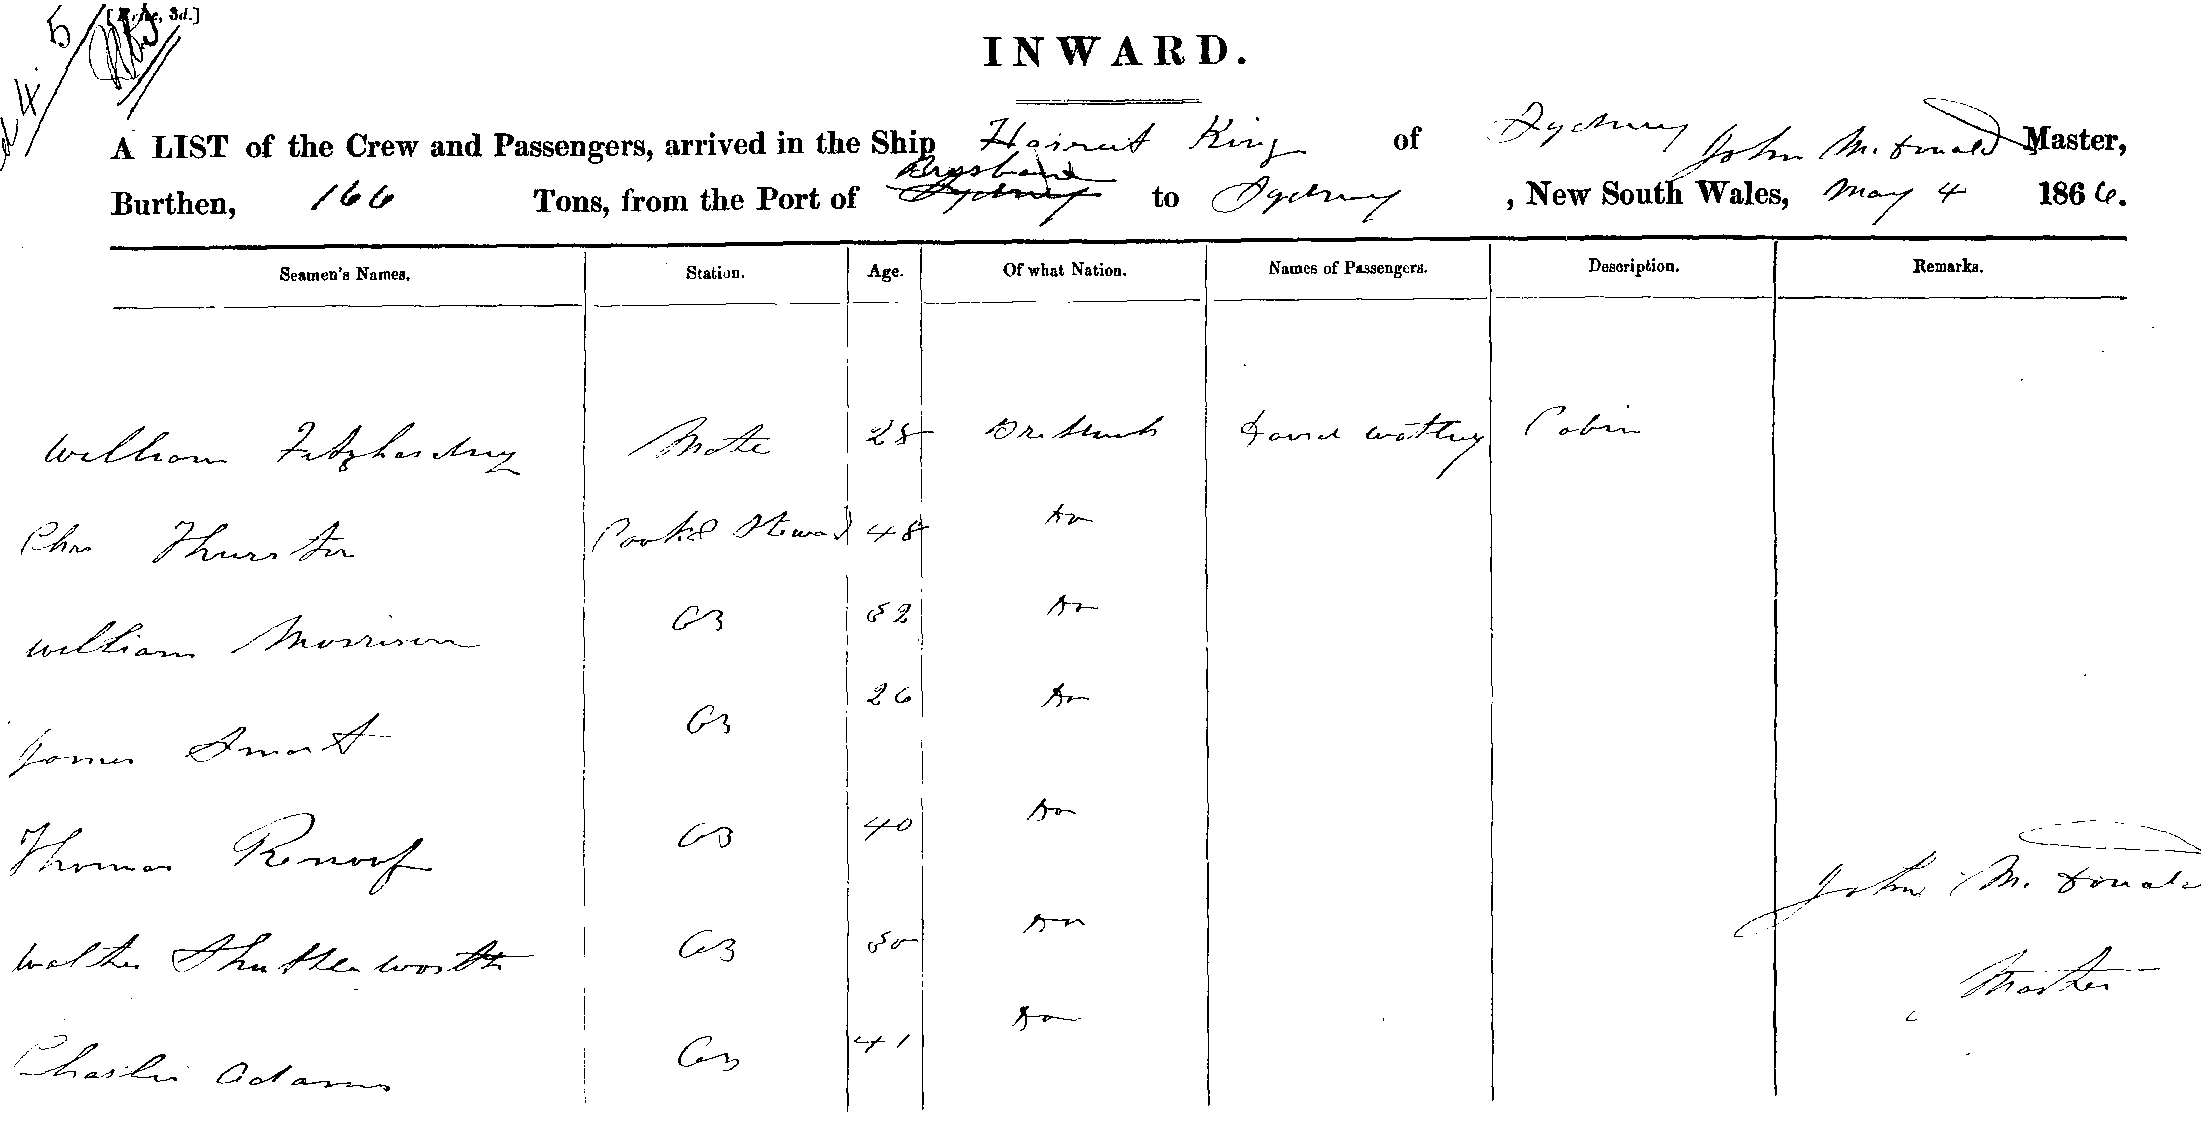 [Price, 3d.]
4. 5
INWARD.
A LIST of the Crew and Passengers, arrived in the Ship Hairiet King of Sydney John McDonald Master,
Brysbane
Burthen, 166 Tons, from the Port of Sydney to Sydney, New South Wales, May 4 1866.
Seamen's Names. Station. Age. Of what Nation. Names of Passengers. Description. Remarks.
William Fitzhardiny Mate 28 Brittish David Cabin
Chas Thurston Cook & Steward 48 Do
William Morrison AB 32 Do
James Smart AB 26 Do
Thomas Renoof AB 40 Do
John McDonald
Walter Shuttleworth AB 30 Do
Master
Charles Adams AB 41 Do